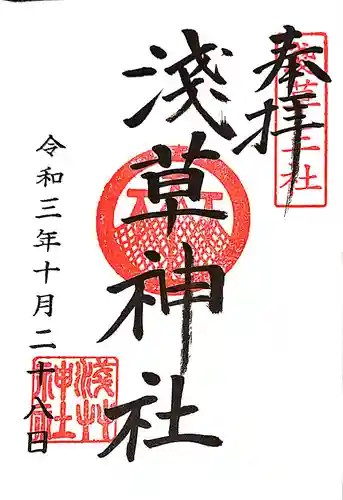 奉拝
淺草三社
淺草神社
令和三年十月二十八日
淺草神社